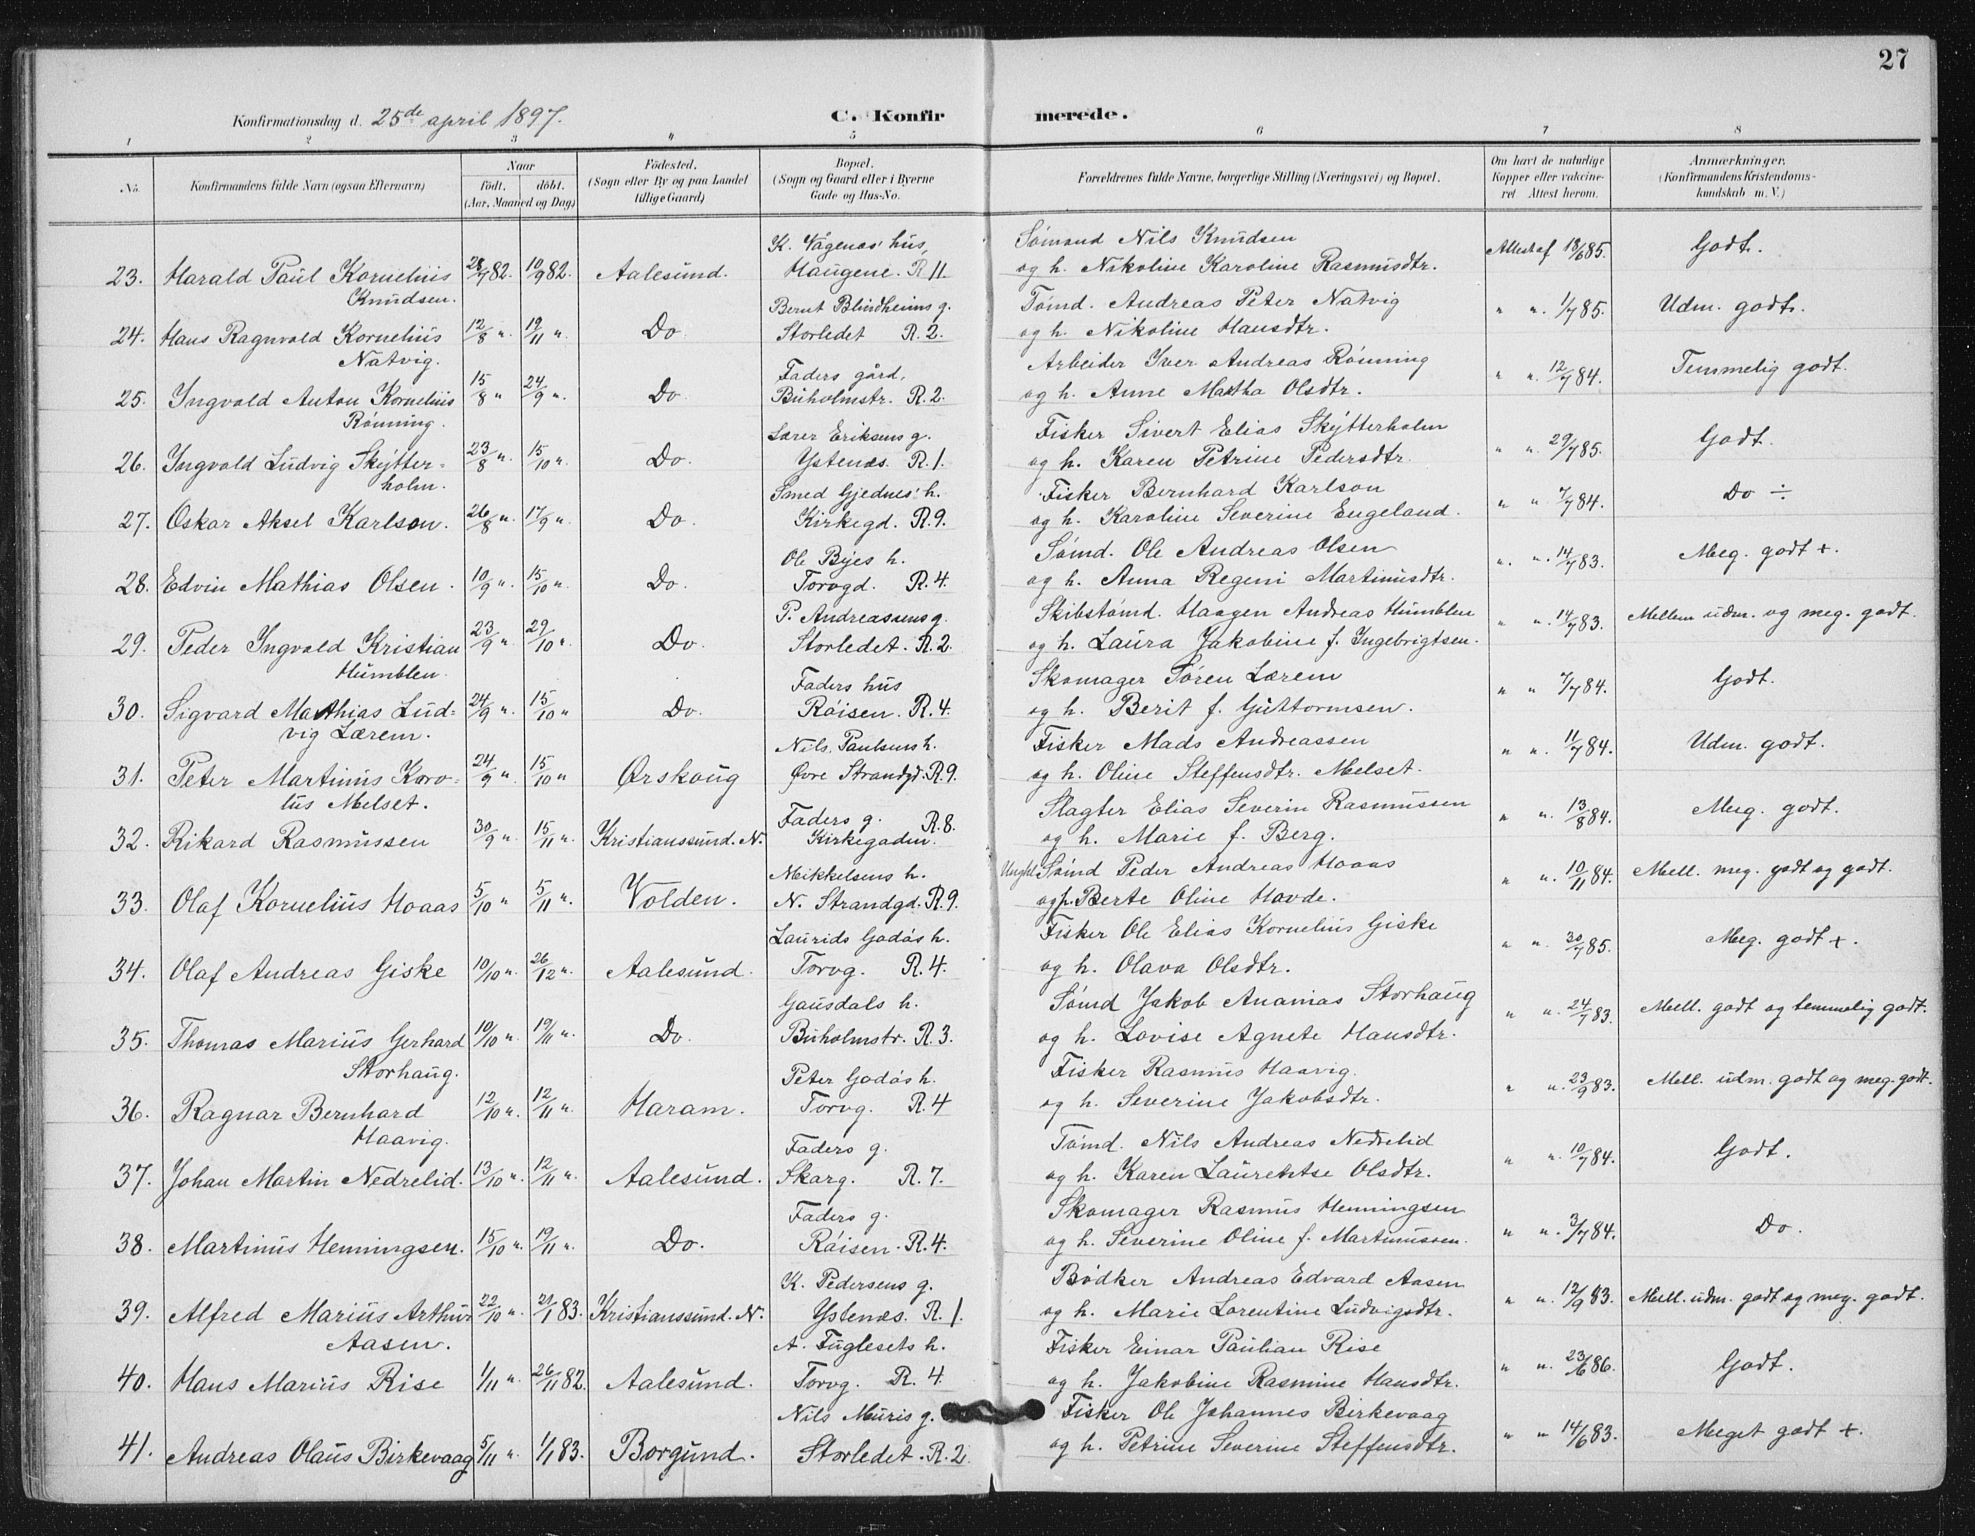 27
Konfirmationsdag d. 25de april 1897.
C. Konfirmerede.
1 2 3 4 5 6 7 8
No.
Konfirmandens fulde Navn (ogsaa Efternavn)
Naar
födt. döbt.
(Aar, Maaned og Dag)
Födested.
(Sogn eller By og paa Landet
tillige Gaard)
Bopæl.
(Sogn og Gaard eller i Byerne
Gade og Hus-No.
Forældrenes fulde Navne, borgerlige Stilling (Næringsvei) og Bopæl.
Om havt de naturlige
Kopper eller vakcine-
ret Attest herom.
Anmærkninger.
(Konfirmandens Kristendoms-
kundskab m. V.)
K. Vågenes' hus Sömand Nils Knudsen
23. Harald Paul Kornelius 28/7 82. 10/9 82. Aalesund. Haugene. R 11. og h. Nikoline Karoline Rasmusdtr. Attest af 18/6 85. Godt.
Knudsen.
Bernt Blindheims g. Tömd. Andreas Peter Natvig
24. Hans Ragnvald Kornelius 12/8 " 19/11 ". Do Storledet R. 2. og h. Nikoline Hansdtr. " ". 1/7 85. Udm. godt.
Natvig.
Faders gård. Arbeider Iver Andreas Rönning
25. Ingvald Anton Kornelius 15/8 " 24/9 ". Do Buholmstr. R. 2. og h. Anne Martha Olsdtr. " ". 12/7 84. Temmelig godt.
Rönning.
Lærer Eriksens g. Fisker Sivert Elias Skytterholm
26. Ingvald Ludvig Skytter- 23/8 ". 15/10 ". Do. Ystenæs. R. 1. og h. Karen Petrine Pedersdtr. " ". 29/7 85. Godt.
holm.
Smed Gjednes' h. Fisker Bernhard Karlson
27. Oskar Aksel Karlson. 26/8 ". 17/9 ". Do. Kirkegd. R. 9. og h. Karoline Severine Engeland. " " 7/7 84. Do ÷
Ole Byes h. Sömd. Ole Andreas Olsen
28. Edvin Mathias Olsen. 10/9 ". 15/10 ". Do. Torvgd. R. 4. og h. Anna Regeni Martinusdtr. ". ". 14/7 83. Meg. godt +.
P. Andreassens g. Skibstömd. Haagen Andreas Humblen
29. Peder Ingvald Kristian 23/9 " 29/10 ". Do. Storledet. R. 2. og h. Laura Jakobine f. Ingebrigtsen. " ". 14/7 83. Mellem udm. og meg. godt.
Humblen.
Faders hus Skomager Sören Lærem
30. Sigvard Mathias Lud- 24/9 ". 15/10 " Do. Röisen. R. 4. og h. Berit f. Guttormsen. " " 7/7 84. Godt.
vig Lærem.
Nils Paulsens h. Fisker Mads Andreassen
31. Peter Martinus Koro- 24/9 ". 15/10 " Ørskoug Øvre Strandgd. R. 9. og h. Oline Steffensdtr. Melset. " ". 11/7 84. Udm. godt.
lus Melset.
Faders g. R. 8. Slagter Elias Severin Rasmussen
32. Rikard Rasmussen 30/9 ". 15/11 ". Kristianssund. N. Kirkegaden. og h. Marie f. Berg. " ". 13/8 84. Meg. godt.
Mikkelsens h. Ungkl. Sömd Peder Andreas Hoaas
33. Olaf Kornelius Hoaas 5/10 " 5/11 ". Volden. N. Strandgd. R. 9. og p. Berte Oline Hovde. " ". 10/11 84. Mell. meg. godt og godt.
Laurids Godös h. Fisker Ole Elias Kornelius Giske
34. Olaf Andreas Giske 10/10 ". 26/12 ". Aalesund. Torvg. R. 4. og h. Olava Olsdtr. " ". 30/7 85. Meg. godt +.
Gausdals h. Sömd Jakob Ananias Storhaug
35. Thomas Marius Gerhard 10/10 ". 19/11 ". Do. Buholmstr. R. 3. og h. Lovise Agnete Hansdtr. " ". 24/7 83. Mell. godt og temmelig godt.
Storhaug.
Peter Godös h. Fisker Rasmus Haavig.
36. Ragnar Bernhard 12/10 ". 12/11 ". Haram. Torvg. R. 4 og h. Severine Jakobsdtr. " ". 23/9 83. Mell. udm. godt og meg. godt.
Haavig.
Faders g. Tömd. Nils Andreas Nedrelid
37. Johan Martin Nedrelid. 13/10 ". 12/11 ". Aalesund. Skarg. R. 7. og h. Karen Laurentse Olsdtr. " ". 10/7 84. Godt.
Faders g. Skomager Rasmus Henningsen
38. Martinus Henningsen. 15/10 ". 19/11 ". Do. Röisen. R. 4. og h. Severine Oline f. Martinussen. " ". 3/7 84. Do.
K. Pedersens g. Bödker Andreas Edvard Aasen
39. Alfred Marius Arthur 22/10 ". 21/1 83. Kristianssund. N. Ystenæs. R. 1. og h. Marie Lorentine Ludvigsdtr. " ". 12/9 83. Mell. udm. godt og meg. godt.
Aasen.
A. Fuglesets h. Fisker Einar Paulian Rise
40. Hans Marius Rise 1/11 ". 26/11 82. Aalesund. Torvg. R. 4. og h. Jakobine Rasmine Hansdtr. " ". 23/6 86. Godt.
Nils Muris g. Fisker Ole Johannes Birkevaag
41. Andreas Olaus Birkevaag 5/11 ". 1/1 83. Borgund. Storledet. R. 2. og h. Petrine Severine Steffensdtr. " " 14/6 83. Meget godt +.